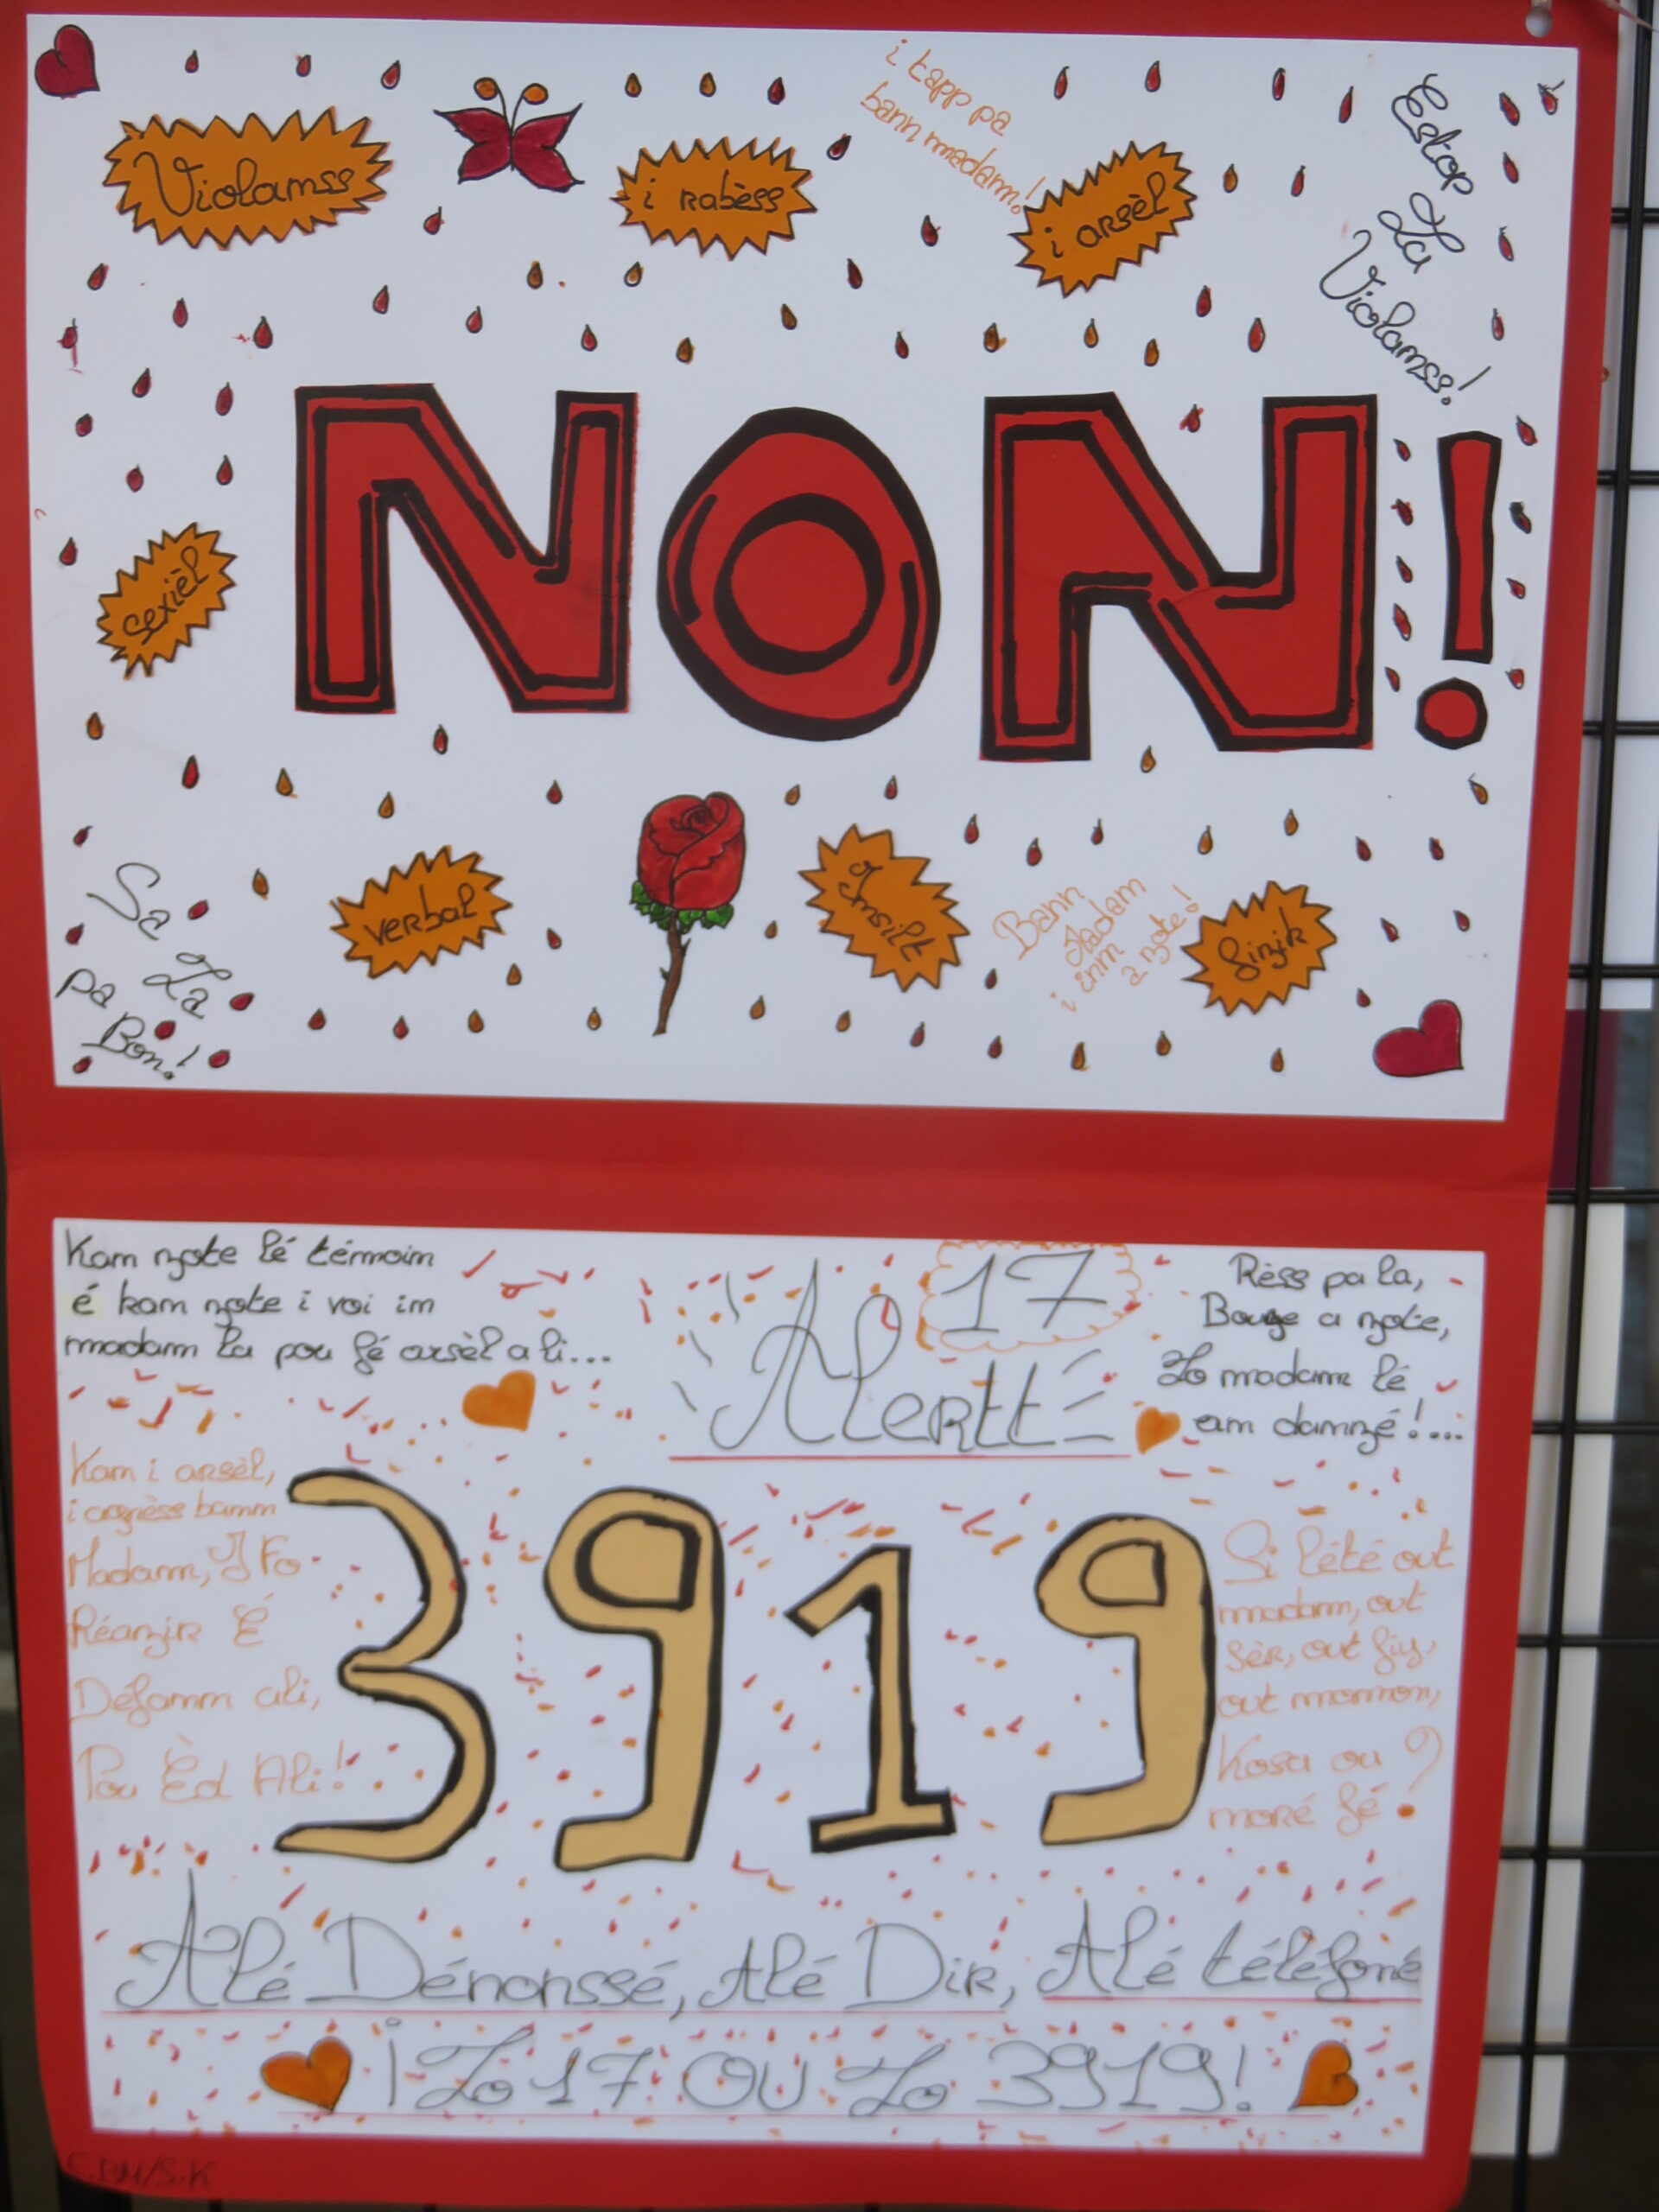 Violanss
i rabèss
i tapp pa
bann madam!
i arsèl
Estop
La
Violanss!
NON!
sexièl
Sa La
pa
Bon!
verbal
Insilt
Bann
Madam
i inm
a zote!
fizik
Kan zote lé témoin
é kan zote i voi in
madam la pou fé arsèl a li...
17
Alertt
Rèss pa la,
Bouge a zote,
Lo madam lé
an danzé!...
Kan i arsèl,
i agrèss bann
Madam, I Fo
Réanzir É
Défann ali,
Pou Èd Ali!
3919
Si lété out
madam, out
sèr, out fiy,
out momon,
Kosa ou
moré fé ?
Alé Dénonssé, Alé Dir, Alé téléfoné
¡Lo 17 OU Lo 3919!